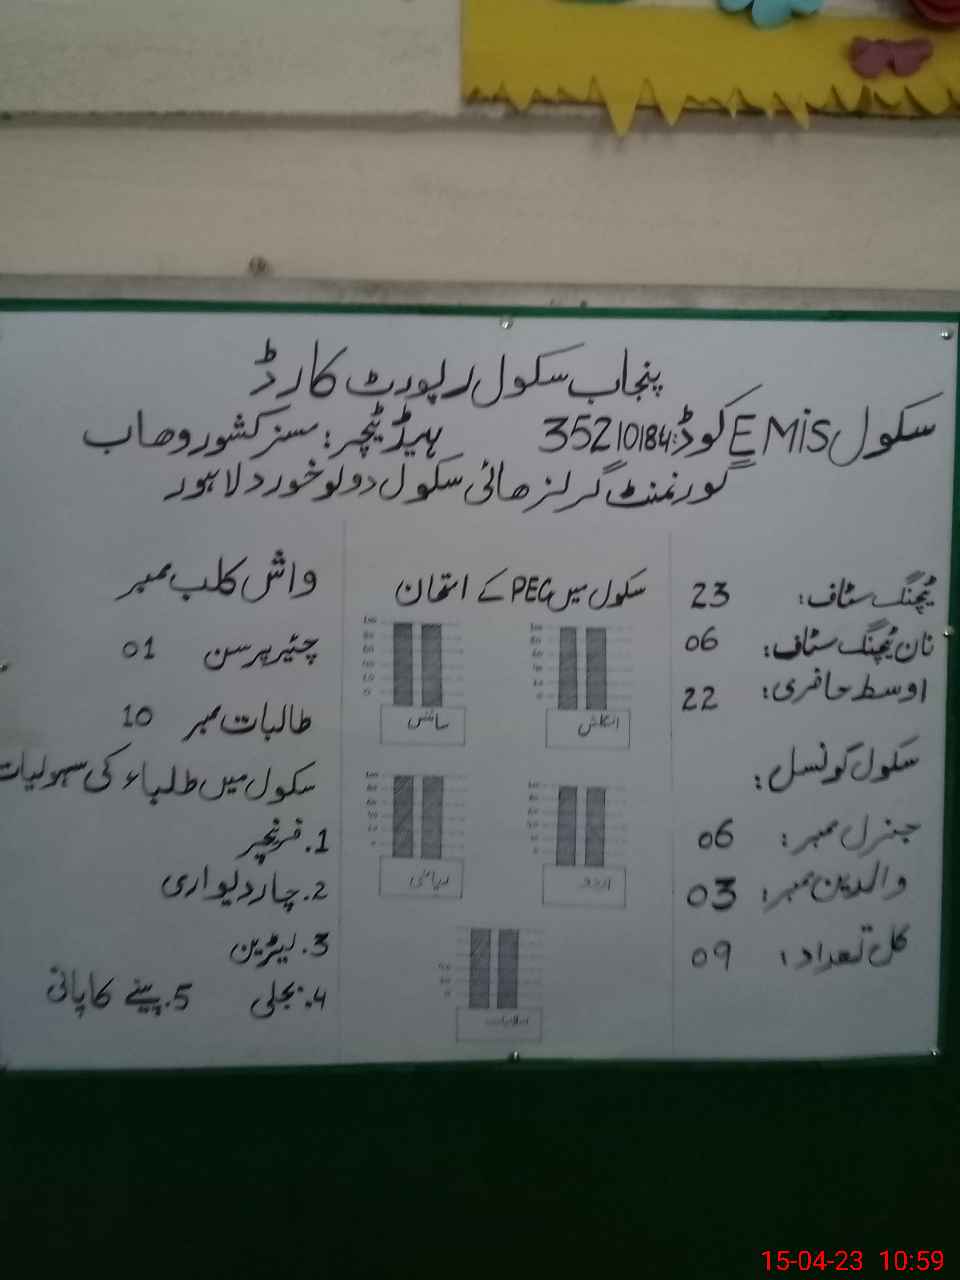 پنجاب سکول رپورٹ کارڈ
سکول EMiS کوڈ: 35210184 ہیڈ ٹیچر: مسز کشور وھاب
گورنمنٹ گرلز ھائی سکول دولو خورد لاہور
ٹیچنگ سٹاف: 23
نان ٹیچنگ سٹاف: 06
اوسط حاضری: 22
سکول کونسل:
جنرل ممبر: 06
والدین ممبر: 03
کل تعداد: 09
سکول میں PEC کے امتحان
انگلش
سائنس
اردو
ریاضی
واش کلب ممبر
چئیر پرسن 01
طالبات ممبر 10
سکول میں طلباء کی سہولیات
1. فرنیچر
2. چار دیواری
3. لیٹرین
4. بجلی 5. پینے کا پانی
15-04-23 10:59